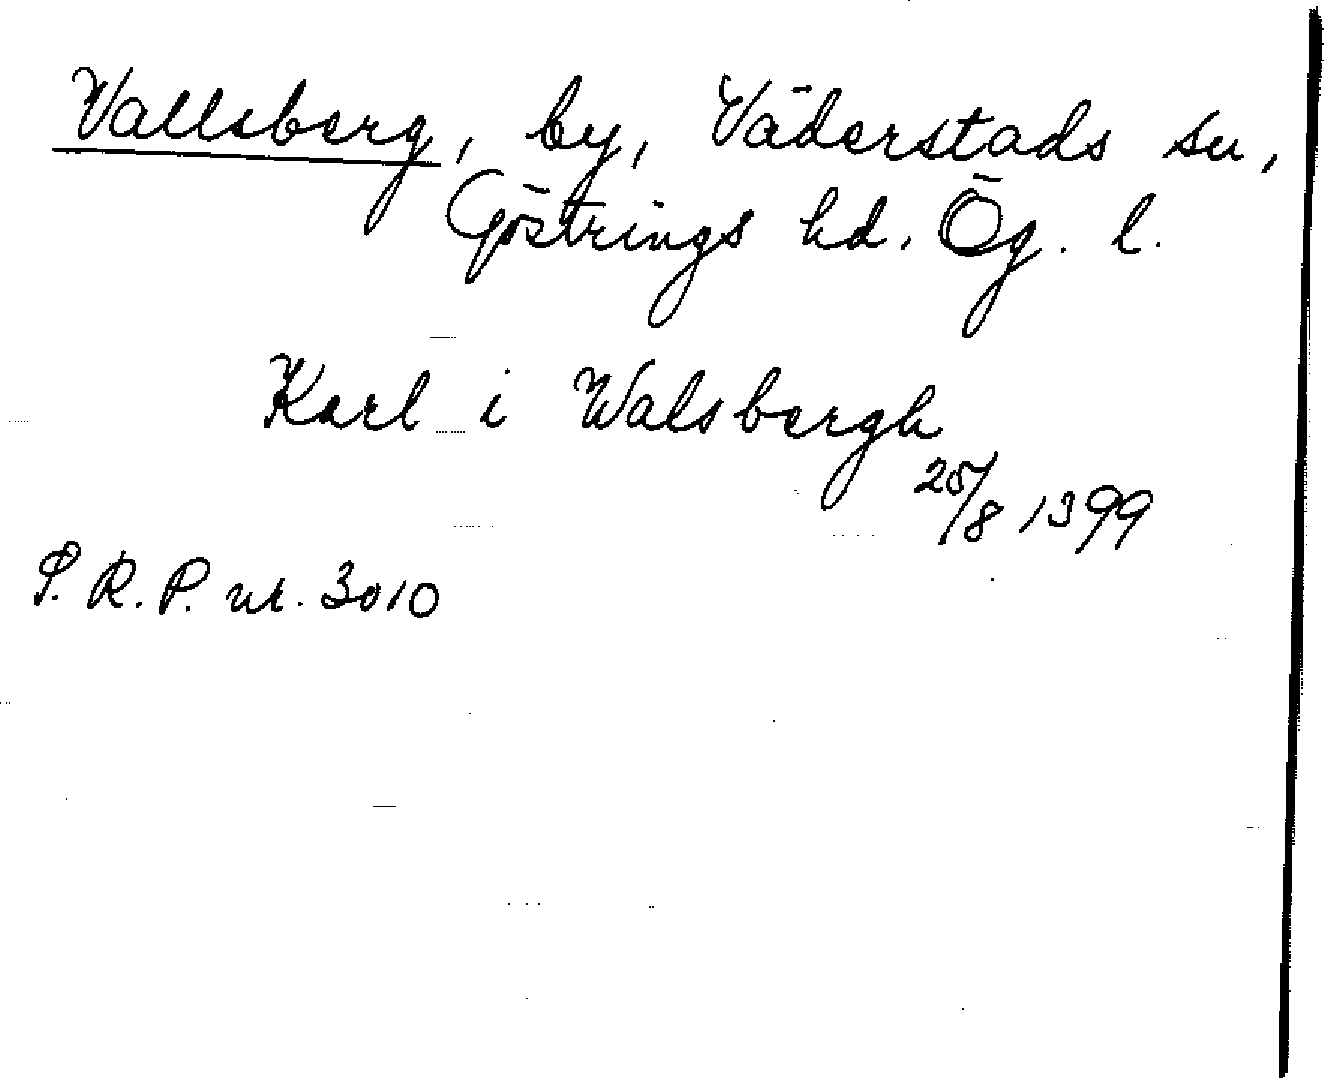 Vallsberg, by, Väderstads sn,
Göstrings hd. Ög. l.
Karl i Walsbergh
25/8 1399
S. R. P. nr. 3010